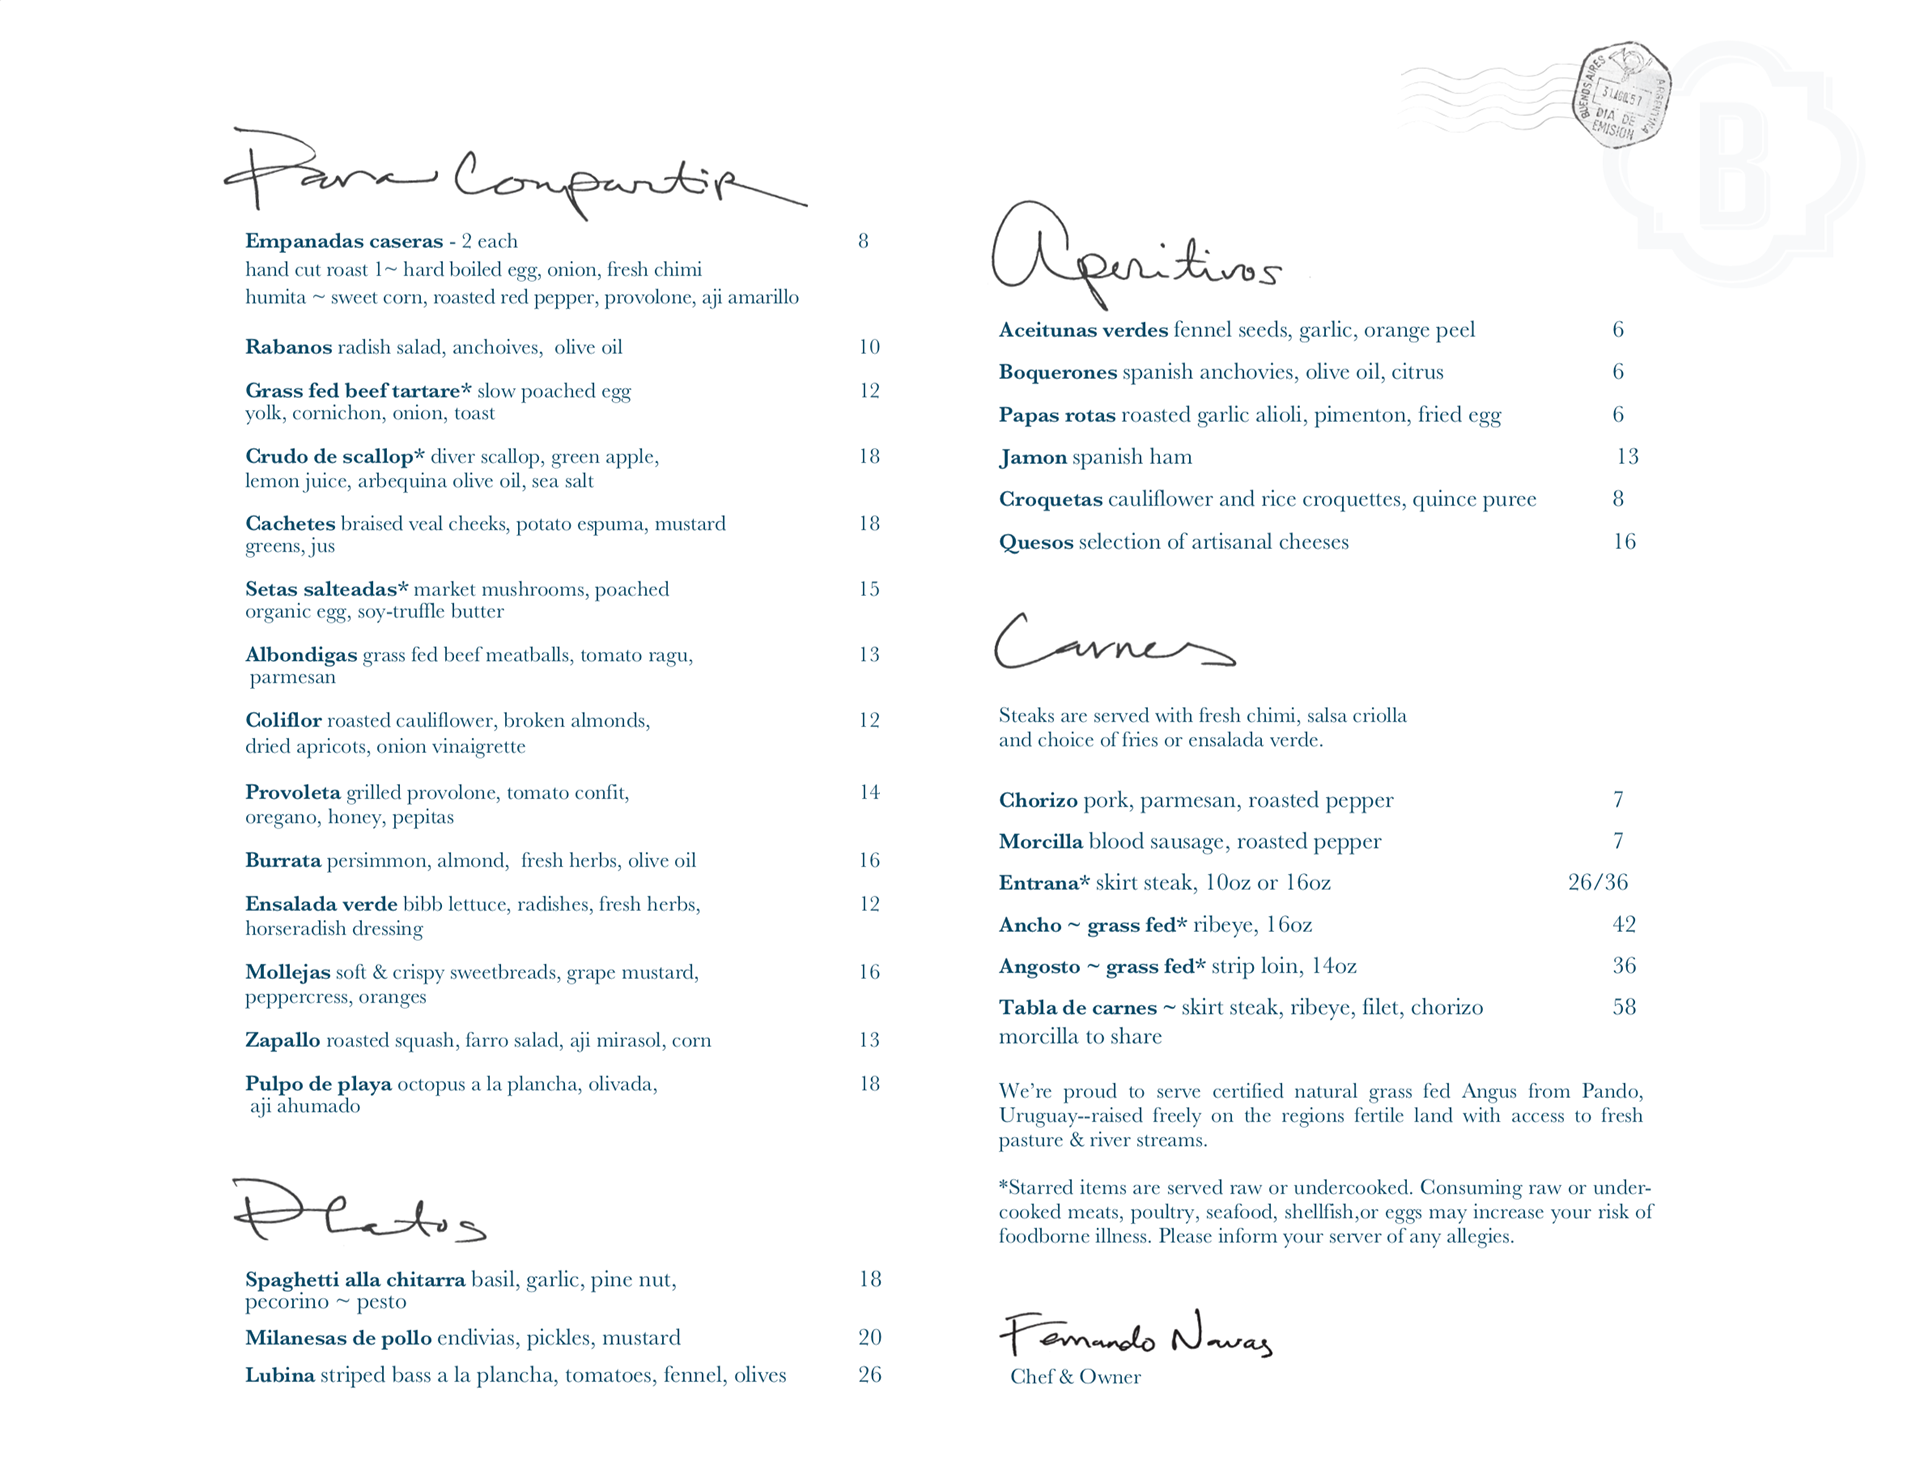 Para Compartir
Empanadas caseras - 2 each 8
hand cut roast 1~ hard boiled egg, onion, fresh chimi
humita ~ sweet corn, roasted red pepper, provolone, aji amarillo
Rabanos radish salad, anchoives, olive oil 10
Grass fed beef tartare* slow poached egg 12
yolk, cornichon, onion, toast
Crudo de scallop* diver scallop, green apple, 18
lemon juice, arbequina olive oil, sea salt
Cachetes braised veal cheeks, potato espuma, mustard 18
greens, jus
Setas salteadas* market mushrooms, poached 15
organic egg, soy-truffle butter
Albondigas grass fed beef meatballs, tomato ragu, 13
parmesan
Coliflor roasted cauliflower, broken almonds, 12
dried apricots, onion vinaigrette
Provoleta grilled provolone, tomato confit, 14
oregano, honey, pepitas
Burrata persimmon, almond, fresh herbs, olive oil 16
Ensalada verde bibb lettuce, radishes, fresh herbs, 12
horseradish dressing
Mollejas soft & crispy sweetbreads, grape mustard, 16
peppercress, oranges
Zapallo roasted squash, farro salad, aji mirasol, corn 13
Pulpo de playa octopus a la plancha, olivada, 18
aji ahumado
Platos
Spaghetti alla chitarra basil, garlic, pine nut, 18
pecorino ~ pesto
Milanesas de pollo endivias, pickles, mustard 20
Lubina striped bass a la plancha, tomatoes, fennel, olives 26
BUENOS AIRES
ARGENTINA
31 AGO. 57
DIA DE
EMISION
B
Aperitivos
Aceitunas verdes fennel seeds, garlic, orange peel 6
Boquerones spanish anchovies, olive oil, citrus 6
Papas rotas roasted garlic alioli, pimenton, fried egg 6
Jamon spanish ham 13
Croquetas cauliflower and rice croquettes, quince puree 8
Quesos selection of artisanal cheeses 16
Carnes
Steaks are served with fresh chimi, salsa criolla
and choice of fries or ensalada verde.
Chorizo pork, parmesan, roasted pepper 7
Morcilla blood sausage, roasted pepper 7
Entrana* skirt steak, 10oz or 16oz 26/36
Ancho ~ grass fed* ribeye, 16oz 42
Angosto ~ grass fed* strip loin, 14oz 36
Tabla de carnes ~ skirt steak, ribeye, filet, chorizo 58
morcilla to share
We're proud to serve certified natural grass fed Angus from Pando,
Uruguay--raised freely on the regions fertile land with access to fresh
pasture & river streams.
*Starred items are served raw or undercooked. Consuming raw or under-
cooked meats, poultry, seafood, shellfish,or eggs may increase your risk of
foodborne illness. Please inform your server of any allegies.
Fernando Navas
Chef & Owner